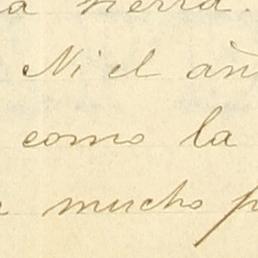 a tierra.
Ni el án
como la
mucho p